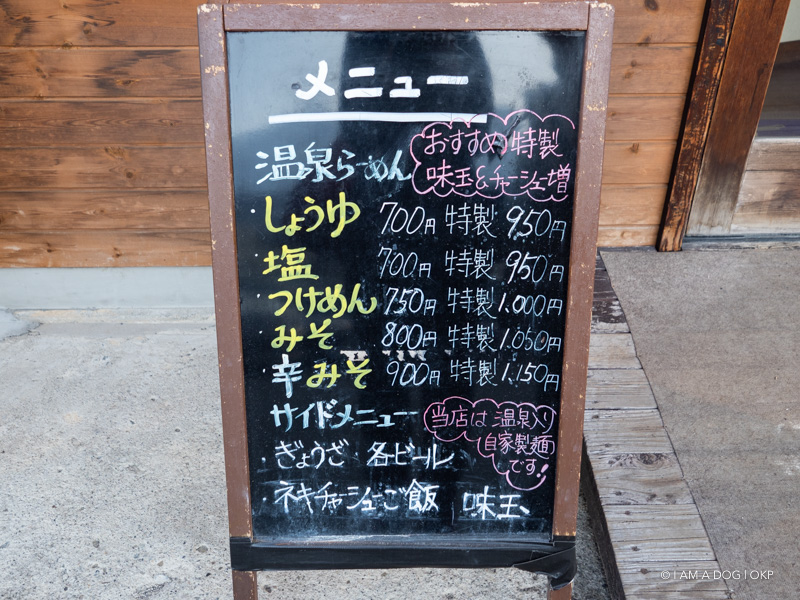 メニュー
温泉らーめん
おすすめ特製
味玉&チャーシュー増
・しょうゆ 700円 特製 950円
・塩 700円 特製 950円
・つけめん 750円 特製 1.000円
・みそ 800円 特製 1.050円
・辛みそ 900円 特製 1.150円
サイドメニュー
当店は温泉入り
自家製麺
です!
・ぎょうざ 各ビール
・ネギチャーシューご飯 味玉、
© I AM A DOG | OKP